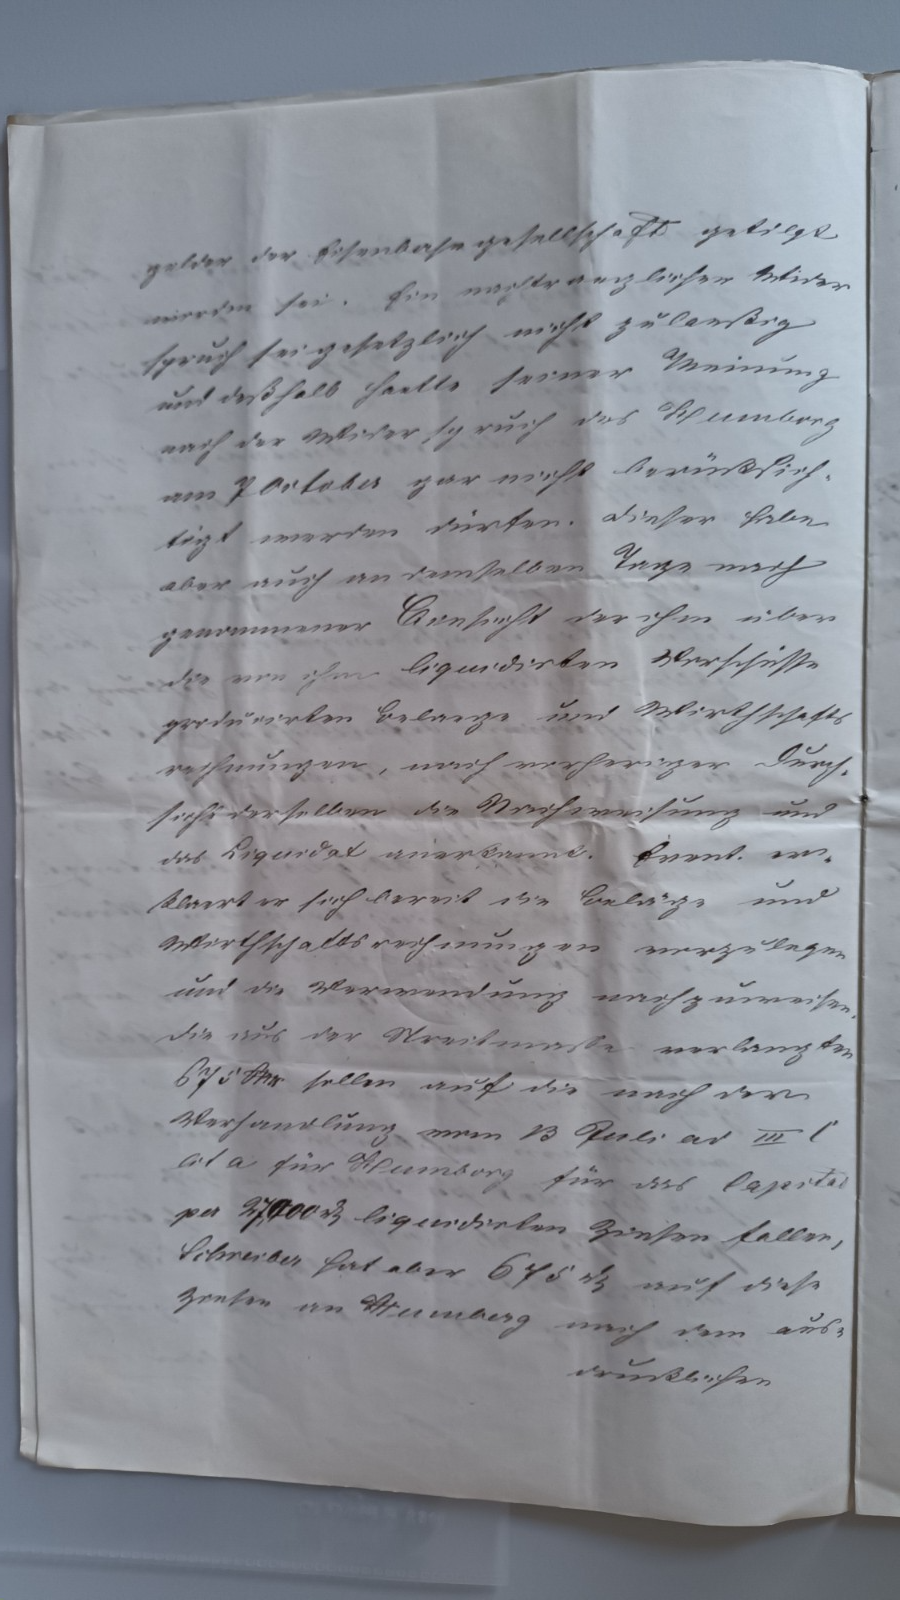 gelder der Eisenbahngesellschaft getilgt
worden sei. Ein nachtraeglicher Wider
spruch sei gesetzlich nicht zulaeßig
und deßhalb haette seiner Meinung
nach der Widerspruch des
am 7 October gar nicht berücksich-
tigt werden dürfen. Dieser habe
aber auch an demselben Tage nach
genommener Einsicht der ihm über
die von ihm liquidirten Vorschüsse
producirten Belaege und Wirthschafts
rechnungen, nach vorheriger Durch-
sicht derselben die Nachweisung und
das Liquidat anerkannt. Event. er-
klaert er sich bereit die Beläge und
Wirthschaftsrechnungen vorzulegen
und die Verwendung nachzuweisen.
Die aus der Streitmasse verlangten
675 sollen auf die nach der
Verhandlung vom 13 Juli ad III
lit a für für das Capital
per liquidirten Zinsen fallen,
Schreiber hat aber 675 auf diese
Zinsen an nach dem aus-
drücklichen